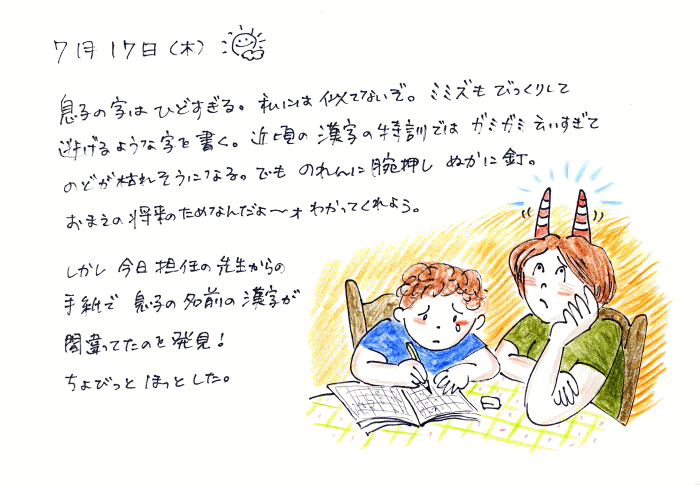 7月17日(木)
息子の字は ひどすぎる。私には 似てないぞ。ミミズも びっくりして
逃げるような字を書く。近頃の 漢字の特訓では ガミガミ 言いすぎて
のどが枯れそうになる。でも のれんに 腕押し ぬかに釘。
おまえの将来のためなんだよ〜ォ わかってくれよう。
しかし 今日 担任の先生からの
手紙で 息子の名前の漢字が
間違ってたのを 発見!
ちょびっと ほっとした。